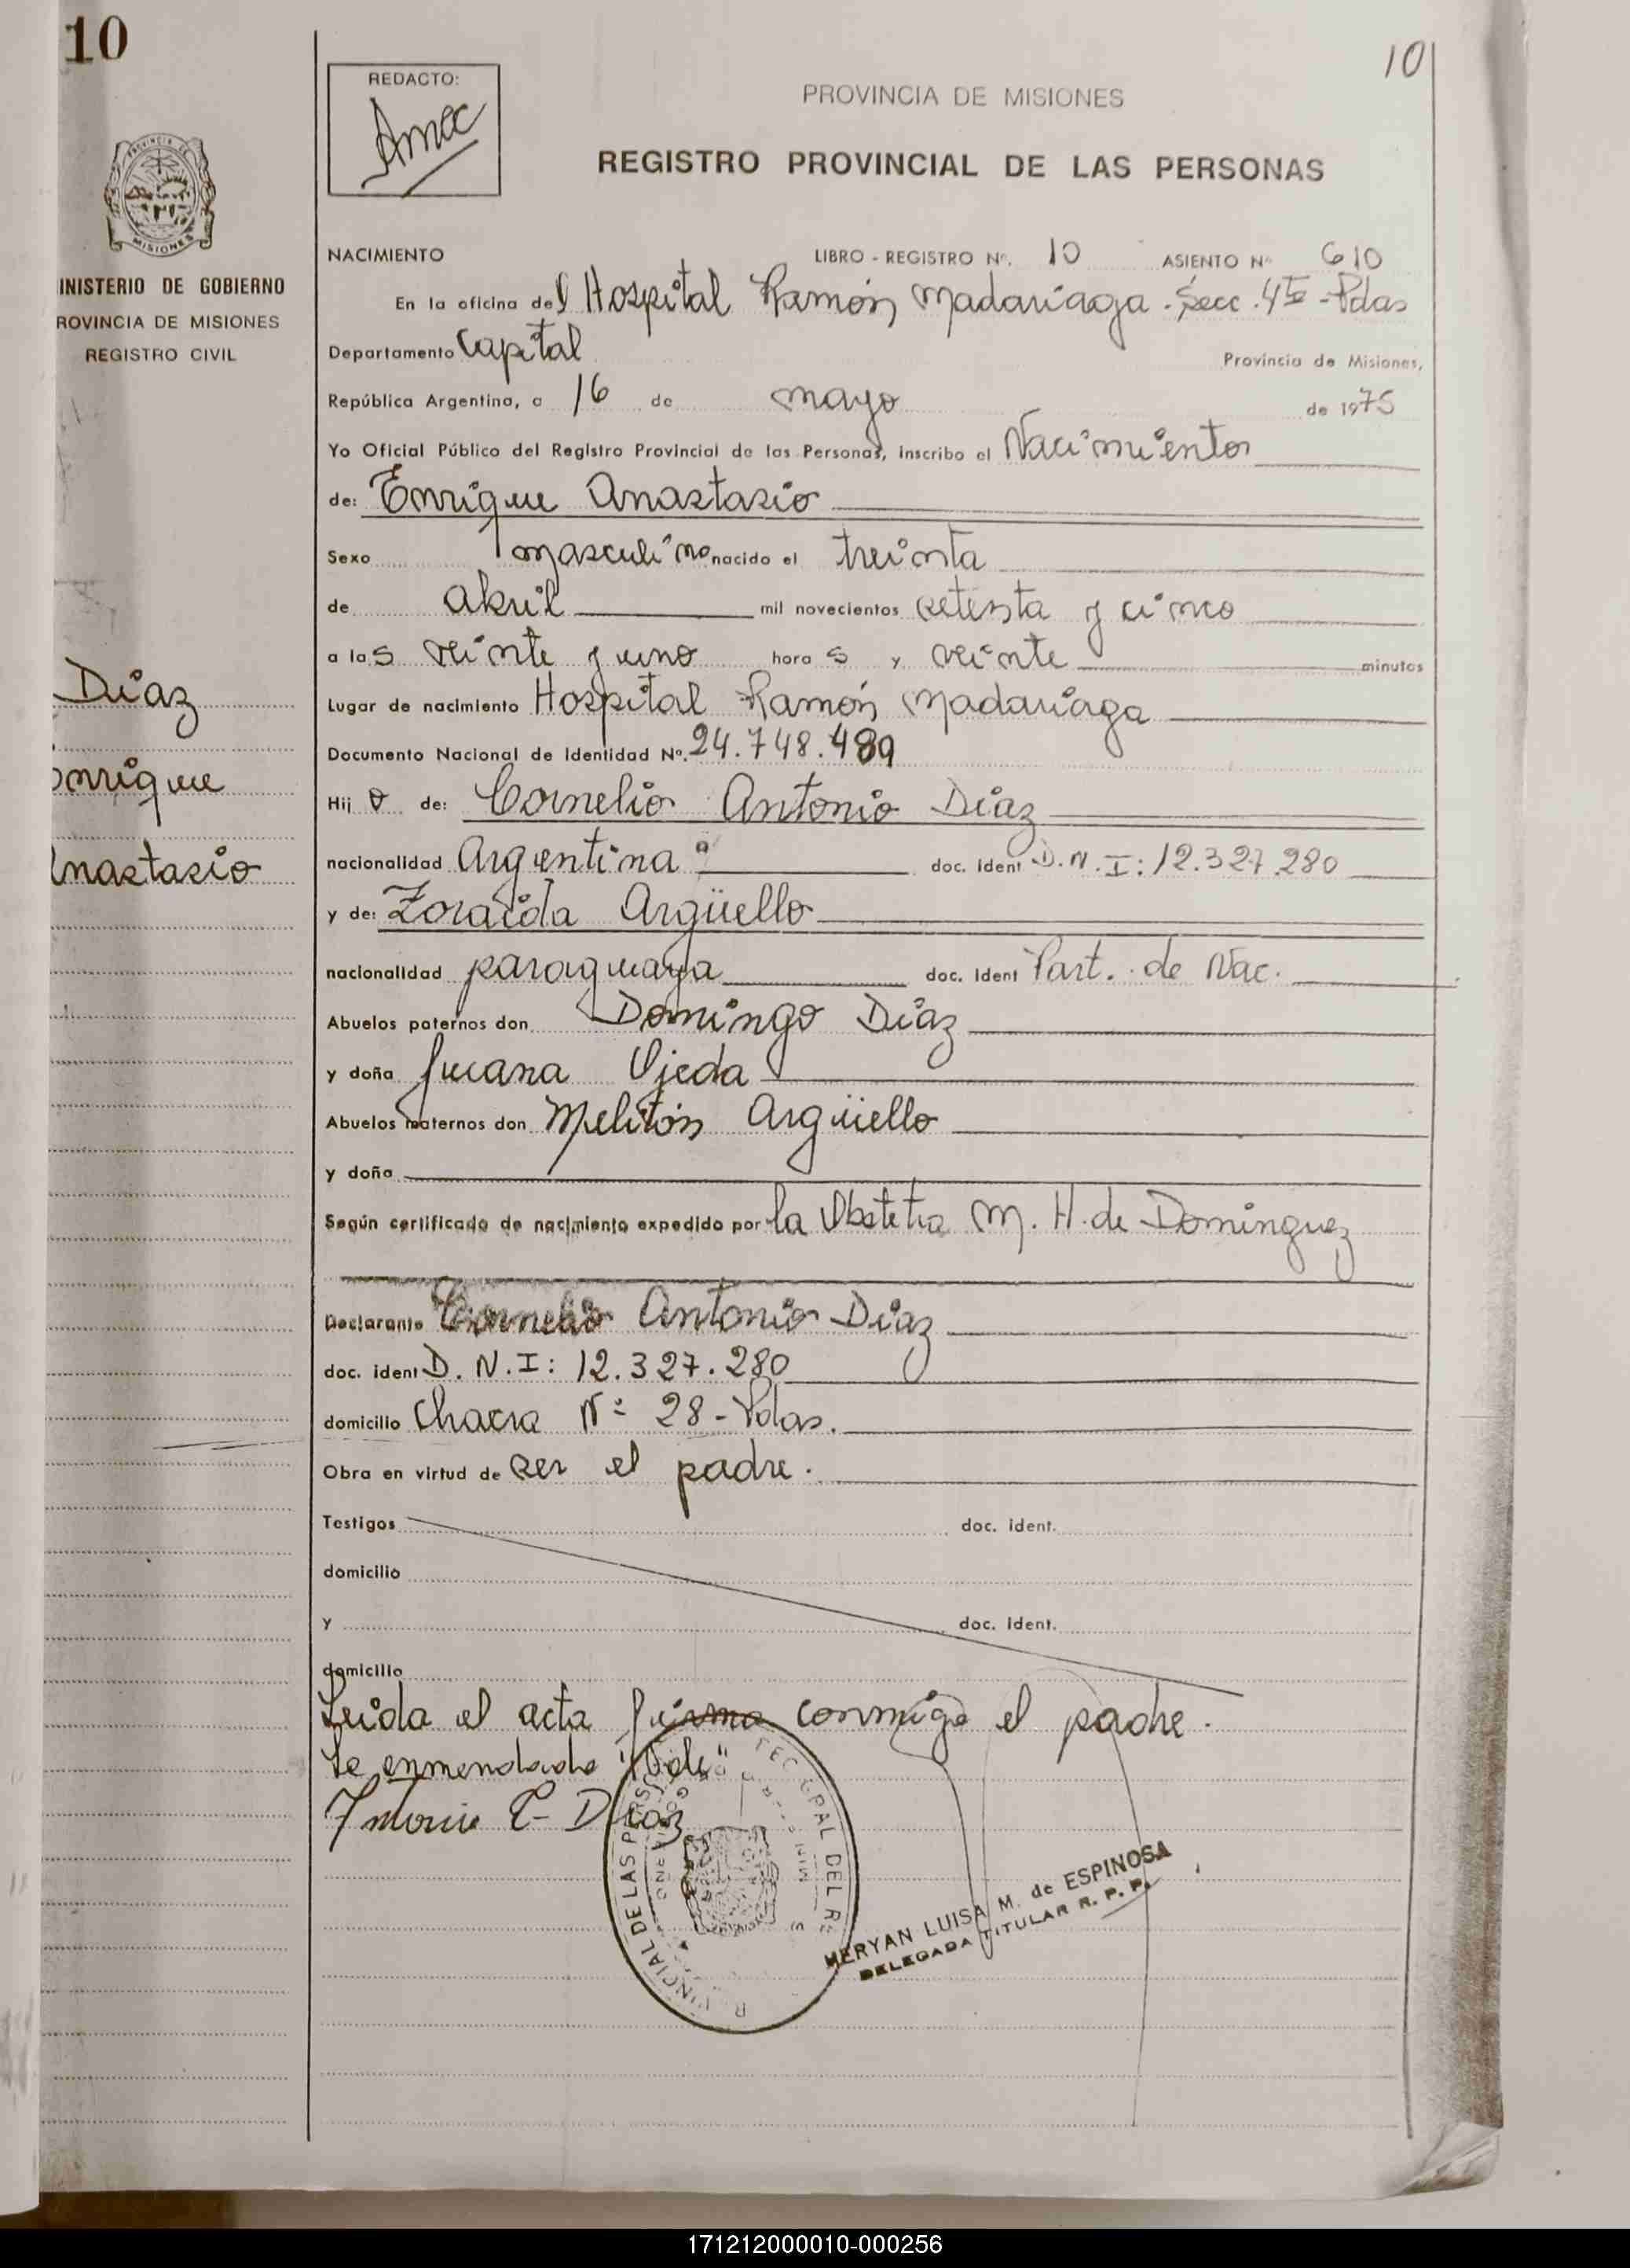 10
10
REDACTO:
PROVINCIA DE MISIONES
REGISTRO PROVINCIAL DE LAS PERSONAS
MISIONES
INISTERIO DE GOBIERNO
ROVINCIA DE MISIONES
REGISTRO CIVIL
Diaz
nrique
Anastasio
NACIMIENTO LIBRO - REGISTRO Nº. 10 ASIENTO Nº 610
En la oficina del Hospital Ramón Madariaga - Secc. 4ta - Pdas
Departamento Capital Provincia de Misiones,
República Argentina, a 16 de mayo de 1975
Yo Oficial Público del Registro Provincial de las Personas, inscribo el Nacimiento
de: Enrique Anastasio
Sexo masculino nacido el treinta
de abril mil novecientos setenta y cinco
a las veinte y uno horas y veinte minutos
Lugar de nacimiento Hospital Ramón Madariaga
Documento Nacional de Identidad Nº. 24.748.489
Hijo de: Cornelio Antonio Diaz
nacionalidad Argentina doc. ident D.N.I: 12.327.280
y de: Zoraida Argüello
nacionalidad paraguaya doc. ident Part. de Nac.
Abuelos paternos don Domingo Diaz
y doña Juana Ojeda
Abuelos maternos don Melitón Argüello
y doña
Según certificado de nacimiento expedido por la Obstetra M. H. de Dominguez
Declarante Cornelio Antonio Diaz
doc. ident D.N.I: 12.327.280
domicilio Chacra Nº 28 - Pdas.
Obra en virtud de ser el padre.
Testigos doc. ident.
domicilio
y doc. ident.
domicilio
Leida el acta firma conmigo el padre.
enmendado
Antonio C. Diaz
MERYAN LUISA M. de ESPINOSA
DELEGADA TITULAR R. P. P.
171212000010-000256